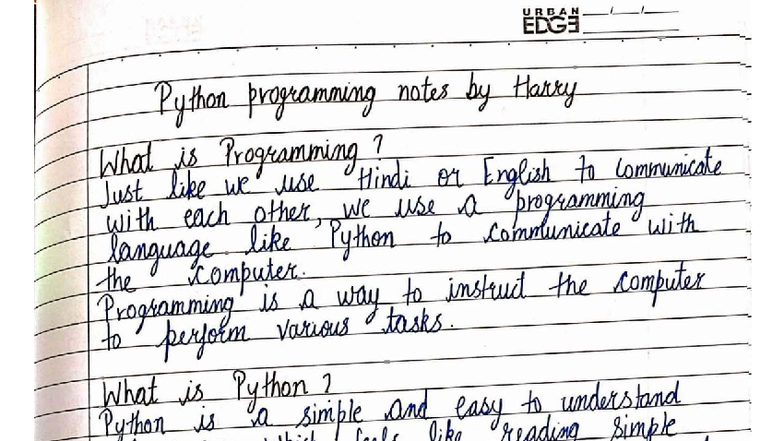 URBAN
EDGE
Python programming notes by Harry
What is Programming ?
Just like we use Hindi or English to communicate
with each other, we use a programming
language like Python to communicate with
the computer.
Programming is a way to instruct the computer
to perform various tasks.
What is Python ?
Python is a simple and easy to understand
which feels like reading simple